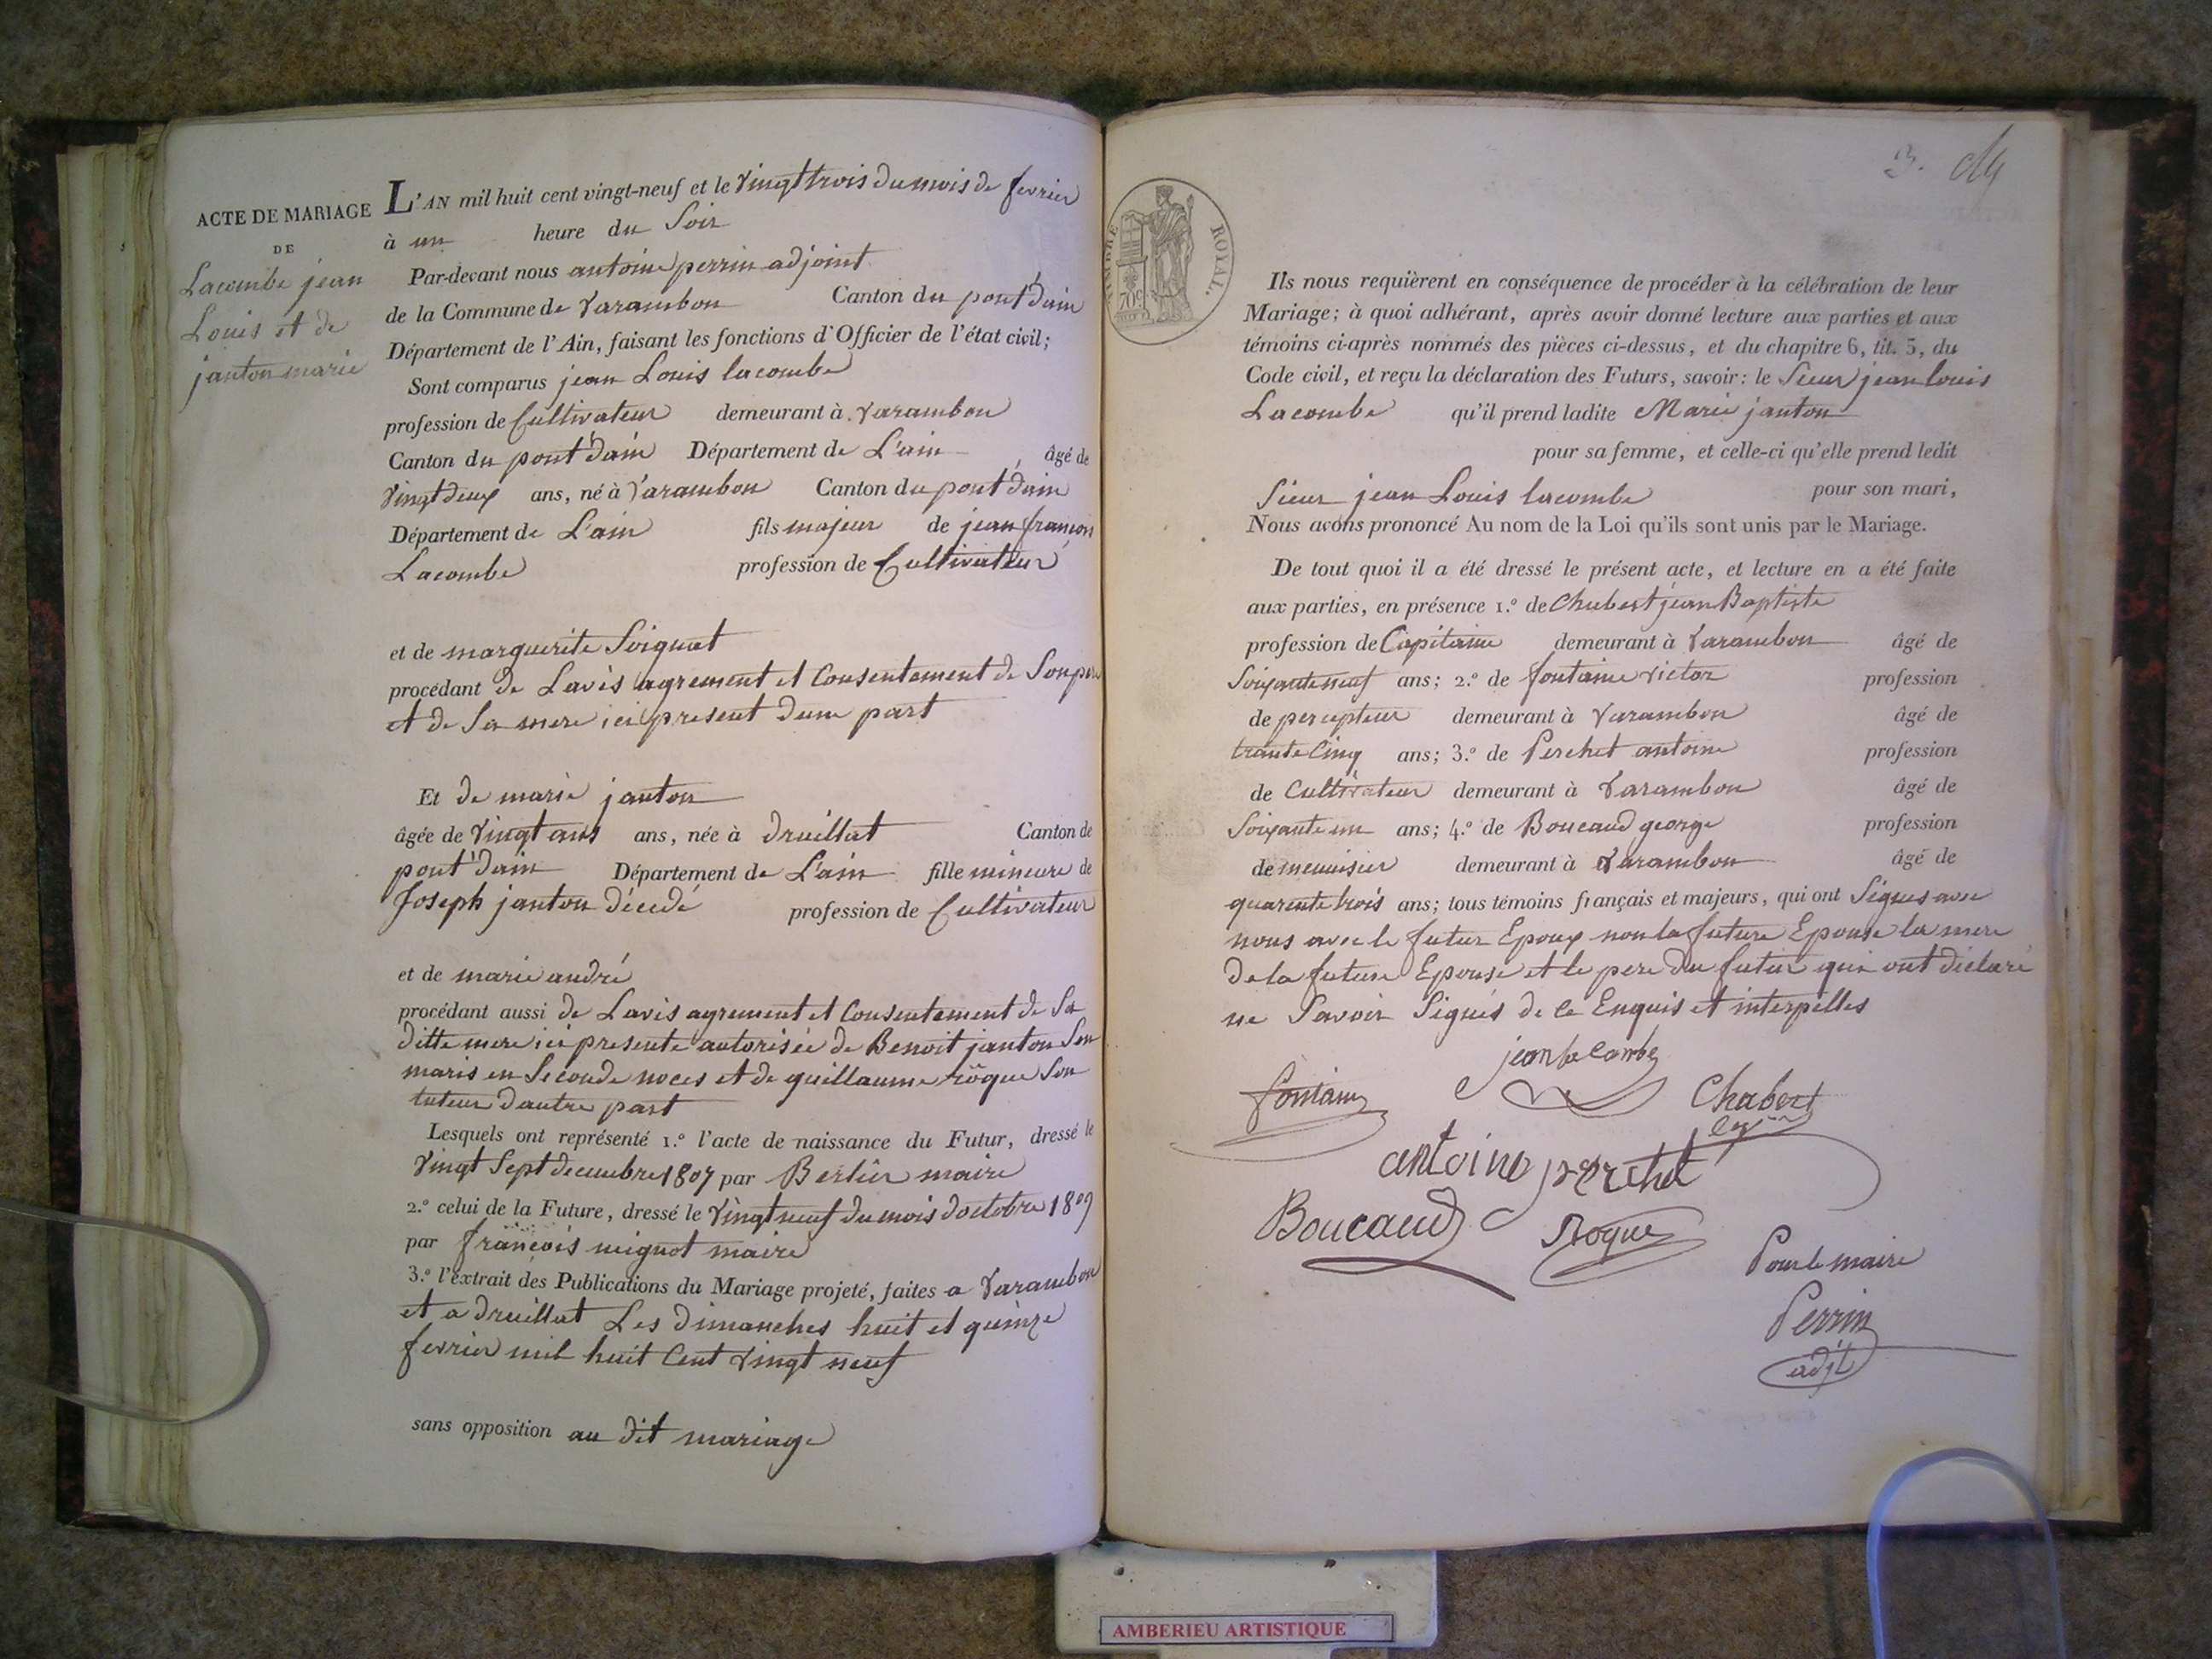 ACTE DE MARIAGE
DE
Lacombe jean
Louis et de
janton marie
L'AN mil huit cent vingt-neuf et le vingt trois du mois de fevrier
à un heure du Soir
Par-devant nous antoine perrin adjoint
de la Commune de varambon Canton du pont d'ain
Département de l'Ain, faisant les fonctions d'Officier de l'état civil;
Sont comparus jean Louis lacombe
profession de Cultivateur demeurant à varambon
Canton du pont d'ain Département de L'ain , âgé de
vingt deux ans, né à varambon Canton du pont d'ain
Département de L'ain fils majeur de jean françois
Lacombe profession de Cultivateur
et de marguerite Soignat
procédant de Lavis agrement et Consentement de Son pere
et de Sa mere ici present dune part
Et de marie janton
âgée de vingt ans ans, née à druillat Canton de
pont d'ain Département de L'ain fille mineure de
Joseph janton décédé profession de Cultivateur
et de marie andré
procédant aussi de Lavis agrement et Consentement de Sa
ditte mere ici presente autorisée de Benoit janton Son
maris en Seconde noces et de guillaume roque Son
tuteur dautre part
Lesquels ont représenté 1.º l'acte de naissance du Futur, dressé le
vingt Sept decembre 1807 par Berlier maire
2.º celui de la Future, dressé le vingt neuf du mois doctobre 1809
par françois mignot maire
3.º l'extrait des Publications du Mariage projeté, faites a varambon
et a druillat Les dimanches huit et quinze
fevrier mil huit Cent vingt neuf
sans opposition au dit mariage
3.
TIMBRE ROYAL.
709
Ils nous requièrent en conséquence de procéder à la célébration de leur
Mariage; à quoi adhérant, après avoir donné lecture aux parties et aux
témoins ci-après nommés des pièces ci-dessus, et du chapitre 6, tit. 5, du
Code civil, et reçu la déclaration des Futurs, savoir: le Sieur jean louis
Lacombe qu'il prend ladite Marie janton
pour sa femme, et celle-ci qu'elle prend ledit
Sieur jean Louis lacombe pour son mari,
Nous avons prononcé Au nom de la Loi qu'ils sont unis par le Mariage.
De tout quoi il a été dressé le présent acte, et lecture en a été faite
aux parties, en présence 1.º de Chabert jean Baptiste
profession de Capitaine demeurant à varambon âgé de
Soixante neuf ans; 2.º de fontaine victor profession
de percepteur demeurant à varambon âgé de
trante Cinq ans; 3.º de Perchet antoine profession
de Cultivateur demeurant à varambon âgé de
Soixante un ans; 4.º de Boucaud george profession
de menuisier demeurant à varambon âgé de
quarente trois ans; tous témoins français et majeurs, qui ont Signes avec
nous avec le futur Epoux non la future Epouse la mere
de la future Epouse et le pere du futur qui ont déclaré
ne Savoir Signés de ce Enquis et interpellés
jean la Combe
fontaine
Chabert
antoine perchet
Boucaud
Roque
Pour le maire
Perrin
adjt
AMBERIEU ARTISTIQUE